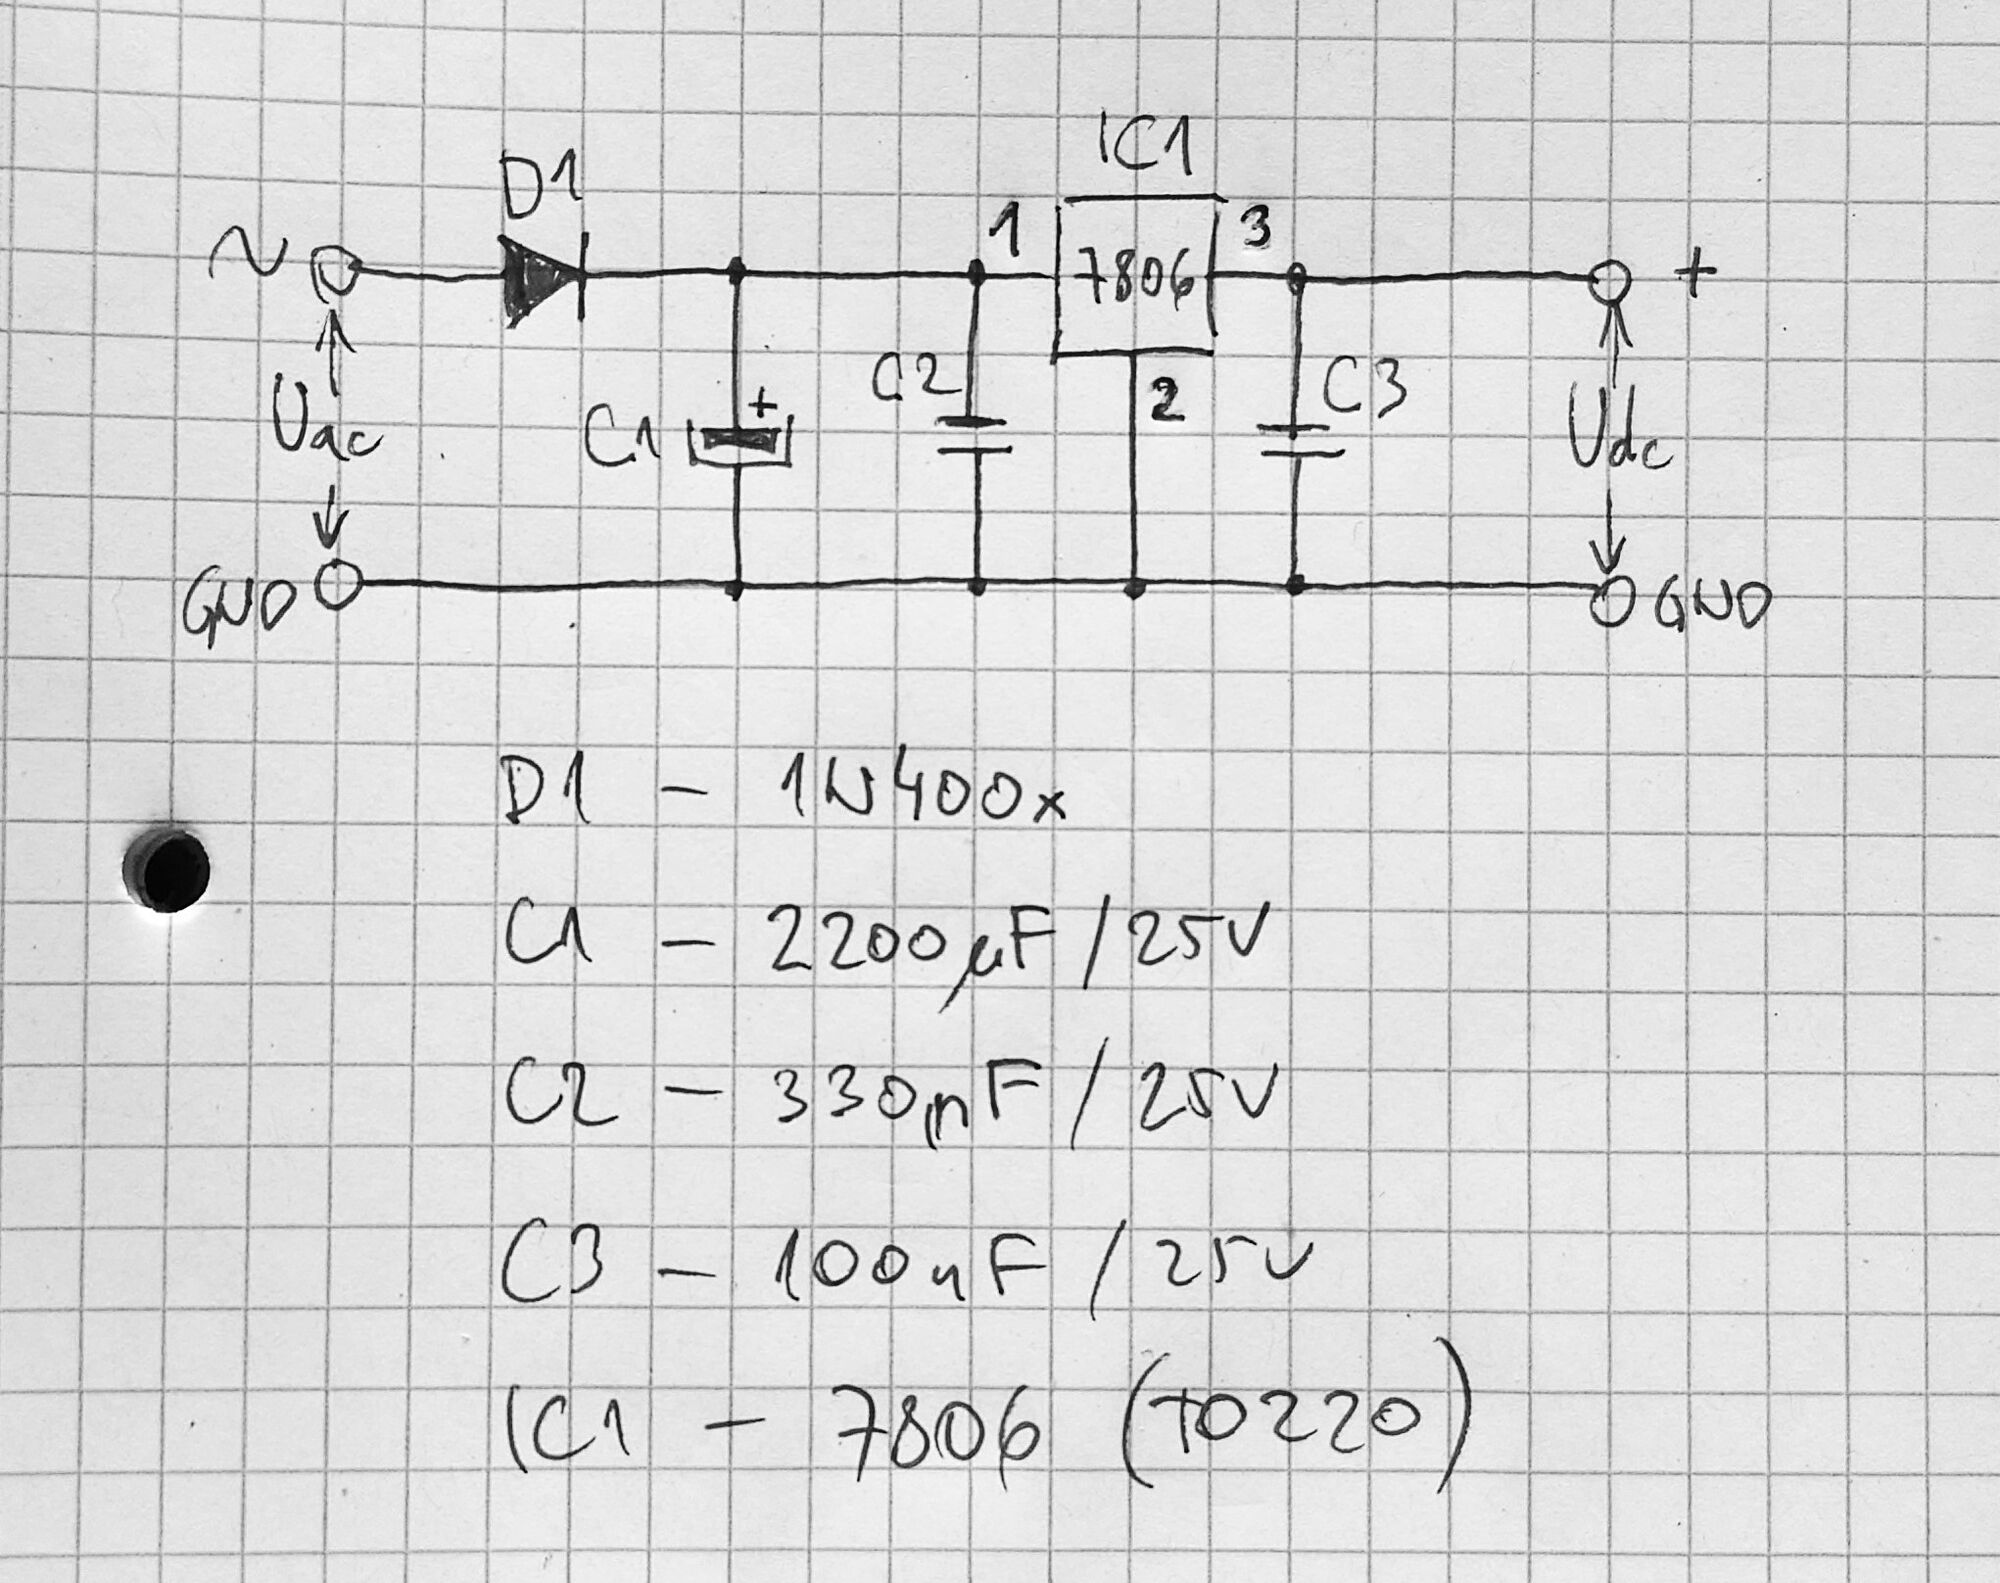 IC1
D1
1
3
~
7806
+
C2
C3
2
Uac
C1
+
Udc
GND
GND
D1 - 1N400x
C1 - 2200µF / 25V
C2 - 330nF / 25V
C3 - 100nF / 25V
IC1 - 7806 (TO220)